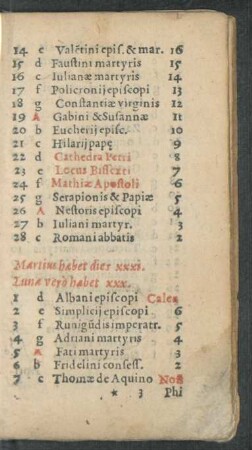 14 c Valẽtini epis. & mar. 16
15 d Faustini martyris 15
16 e Iulianæ martyris 14
17 f Policronij episcopi 13
18 g Constantiæ virginis 12
19 A Gabini &Susannæ 11
20 b Eucherij episc. 10
21 c Hilarij papę 9
22 d Cathedra Petri 8
23 e Locus Bissexti 7
24 f Mathiæ Apostoli 6
25 g Serapionis & Papiæ 5
26 A Nestoris episcopi 4
27 b Iuliani martyr. 3
28 c Romani abbatis 2
Martius habet dies xxxi.
Luna verò habet xxx.
1 d Albani episcopi Calen
2 e Simplicij episcopi 6
3 f Runigũdis imperatr. 5
4 g Adriani martyris 4
5 A Fati martyris 3
6 b Fridelini confess. 2
7 c Thomæ de Aquino Non
* 3 Phi